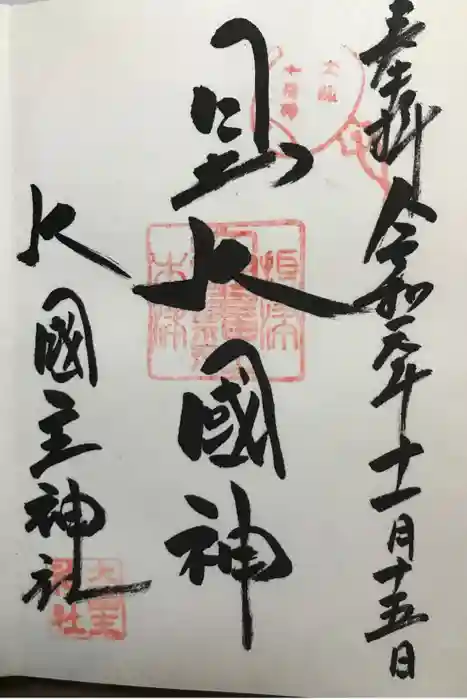 奉拝 令和元年十一月十五日
大國神
大國主神社
大阪
七福神